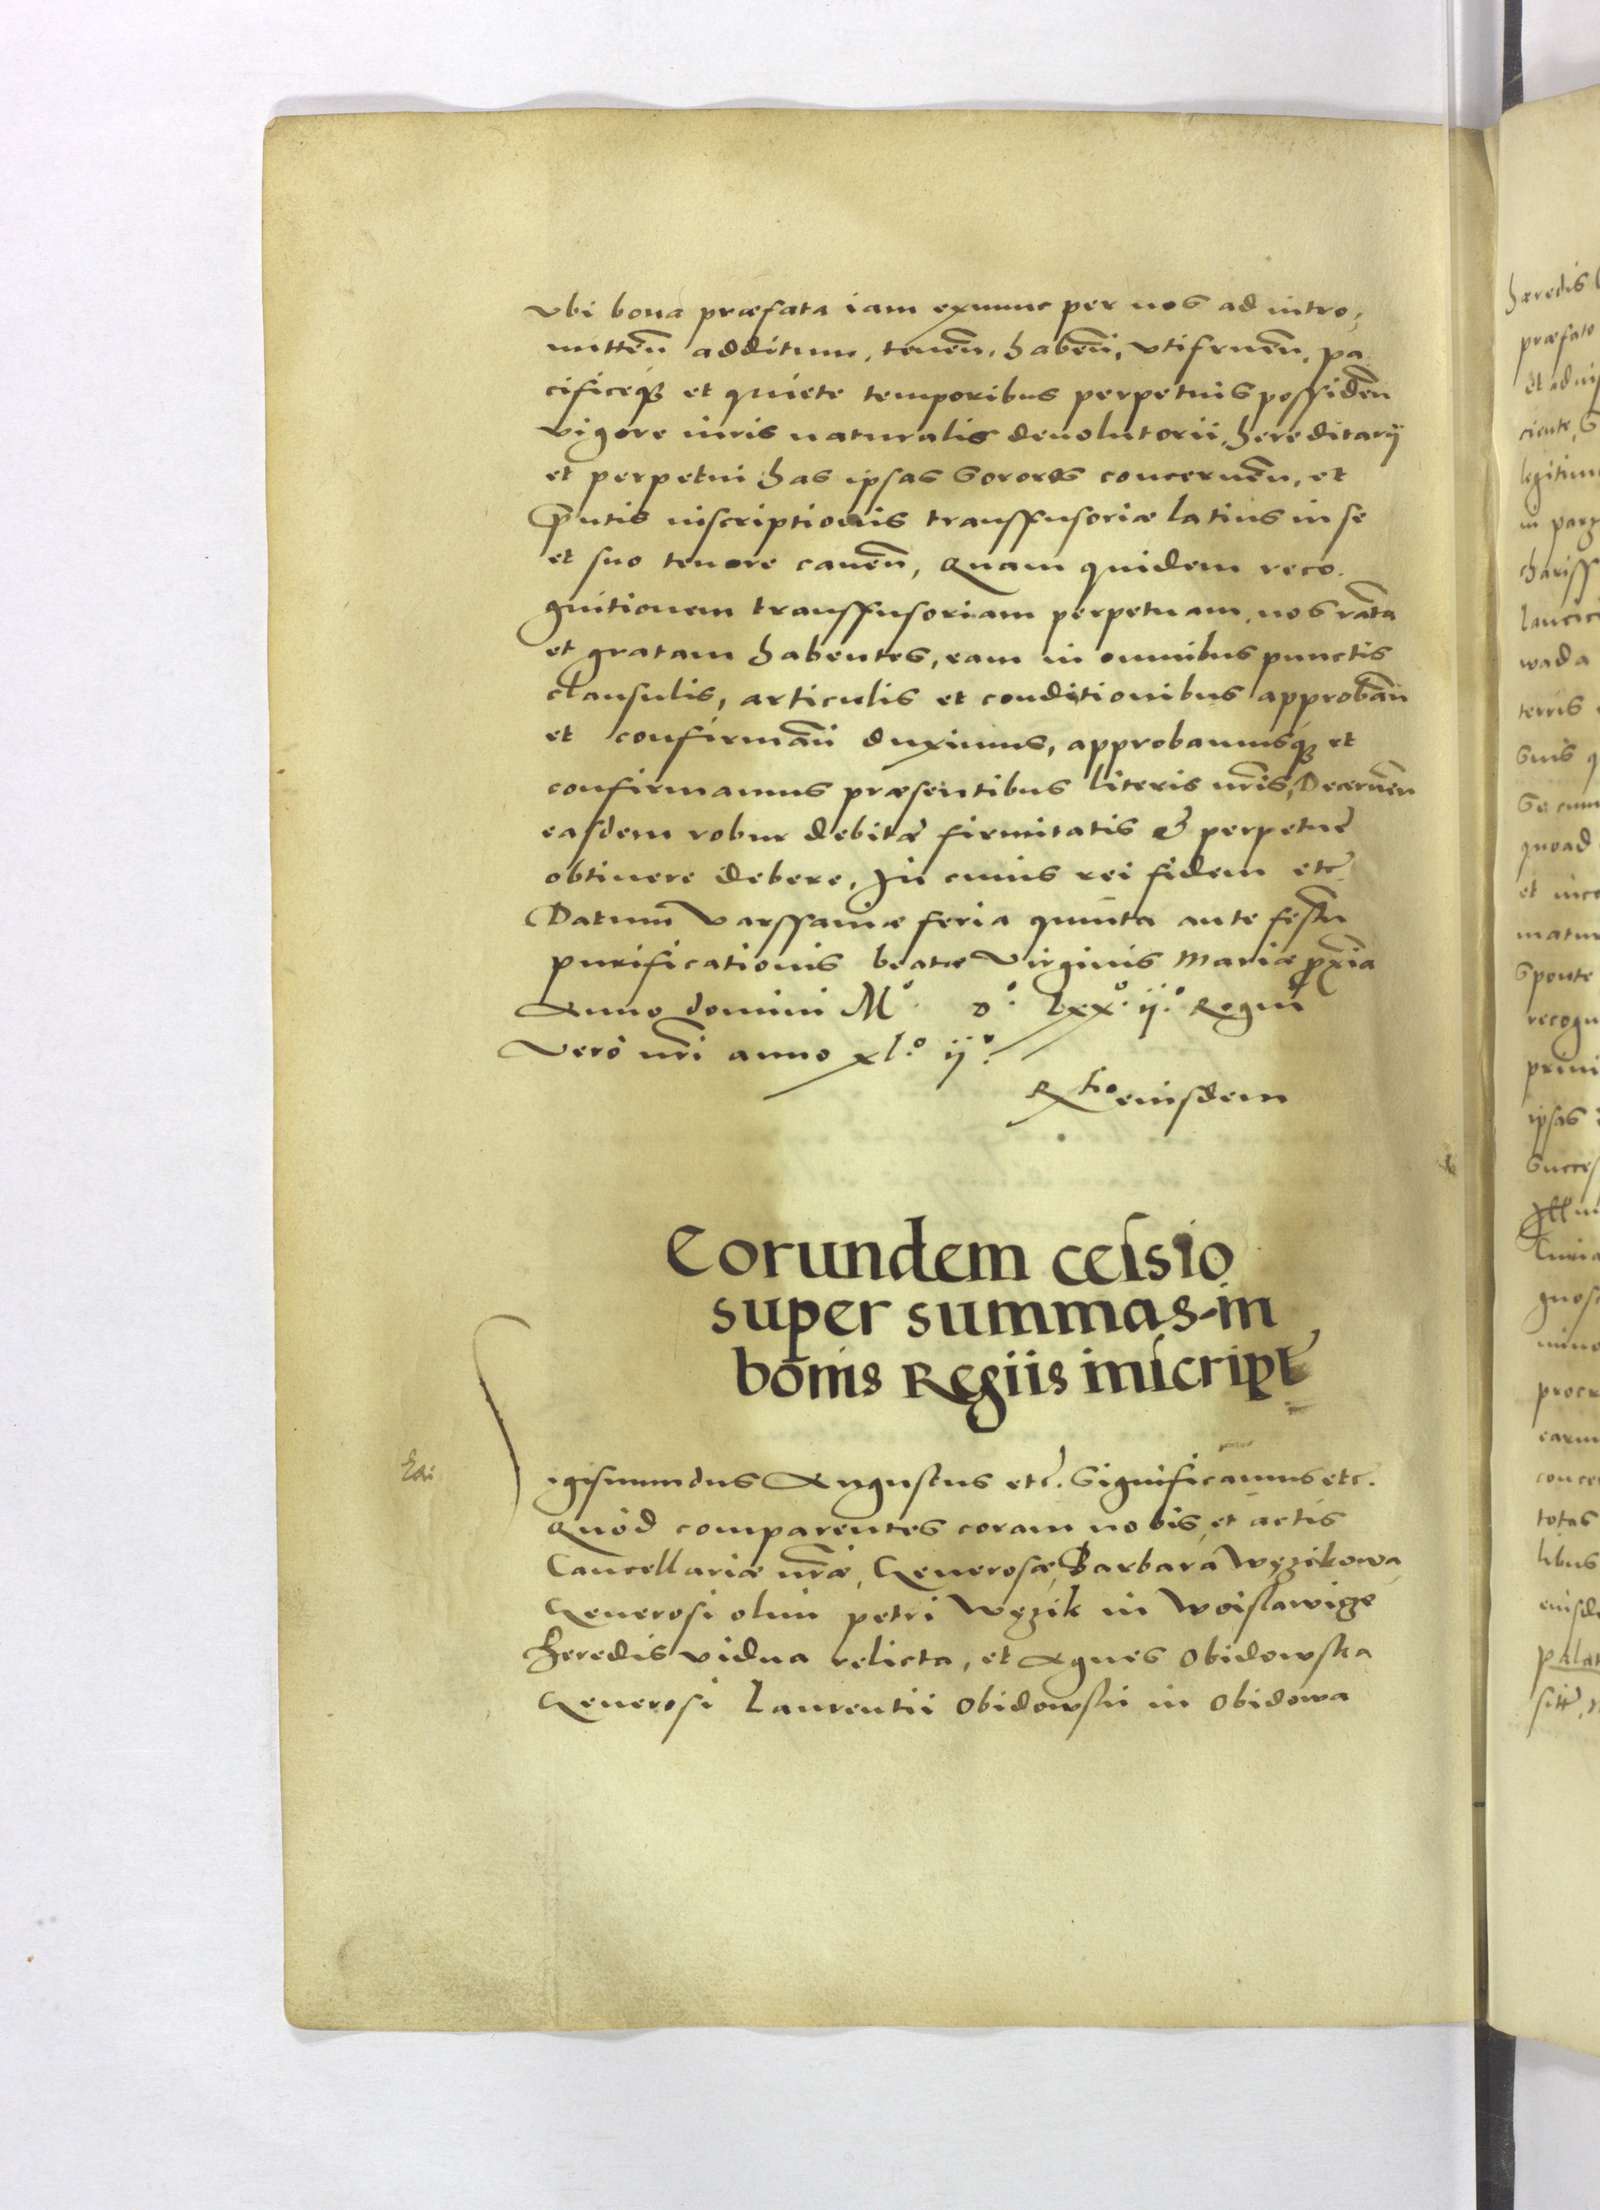 vbi bona præfata iam exnunc per nos ad intro,
mitteñ additum, teneñ, habeñ, vtifrueñ, pa
cificeqȝ et quiete temporibus perpetuis possideñ
vigore iuris naturalis deuolutorii, hereditarij
et perpetui has ipsas Sorores concerneñ, et
p̃ntis inscriptionis transfusoriæ latius in se
et suo tenore caueñ, Quam quidem reco.
gnitionem transfusoriam perpetuam, nos rãta
et gratam habentes, eam in omnibus punctis
clausulis, articulis et conditionibus approbañ
et confirmañ duximus, approbamusqȝ et
confirmamus præsentibus literis nr̃is, Decerneñ
easdem robur debitæ firmitatis & perpetuę
obtinere debere, In cuius rei fidem etc̃
Datum Varssauiæ feria quinta ante festũ
purificationis beatæ Virginis Mariæ pxĩa
Anno domini Mº. dº. Lxxº. ijº. Regni
Vero nr̃i anno xl.º ijº.
Rtio eiusdem
Eorundem cessio
super summas in
bonis Regiis inscript̃
igismundus Augustus etc̃. Significamus etc.
Quod comparentes coram nobis et actis
Cancellariæ nr̃æ, Generosæ, Barbara Węzikowa
Generosi olim petri Węzik in Woislawige
heredis vidua relicta, et Agnes Obidowska
Generosi Laurentii Obidowski in Obidowa
hæredis
præfato
legitim
charissi
wad a
terris
quoad
sponte
recogn
ipsas
Succes
totas